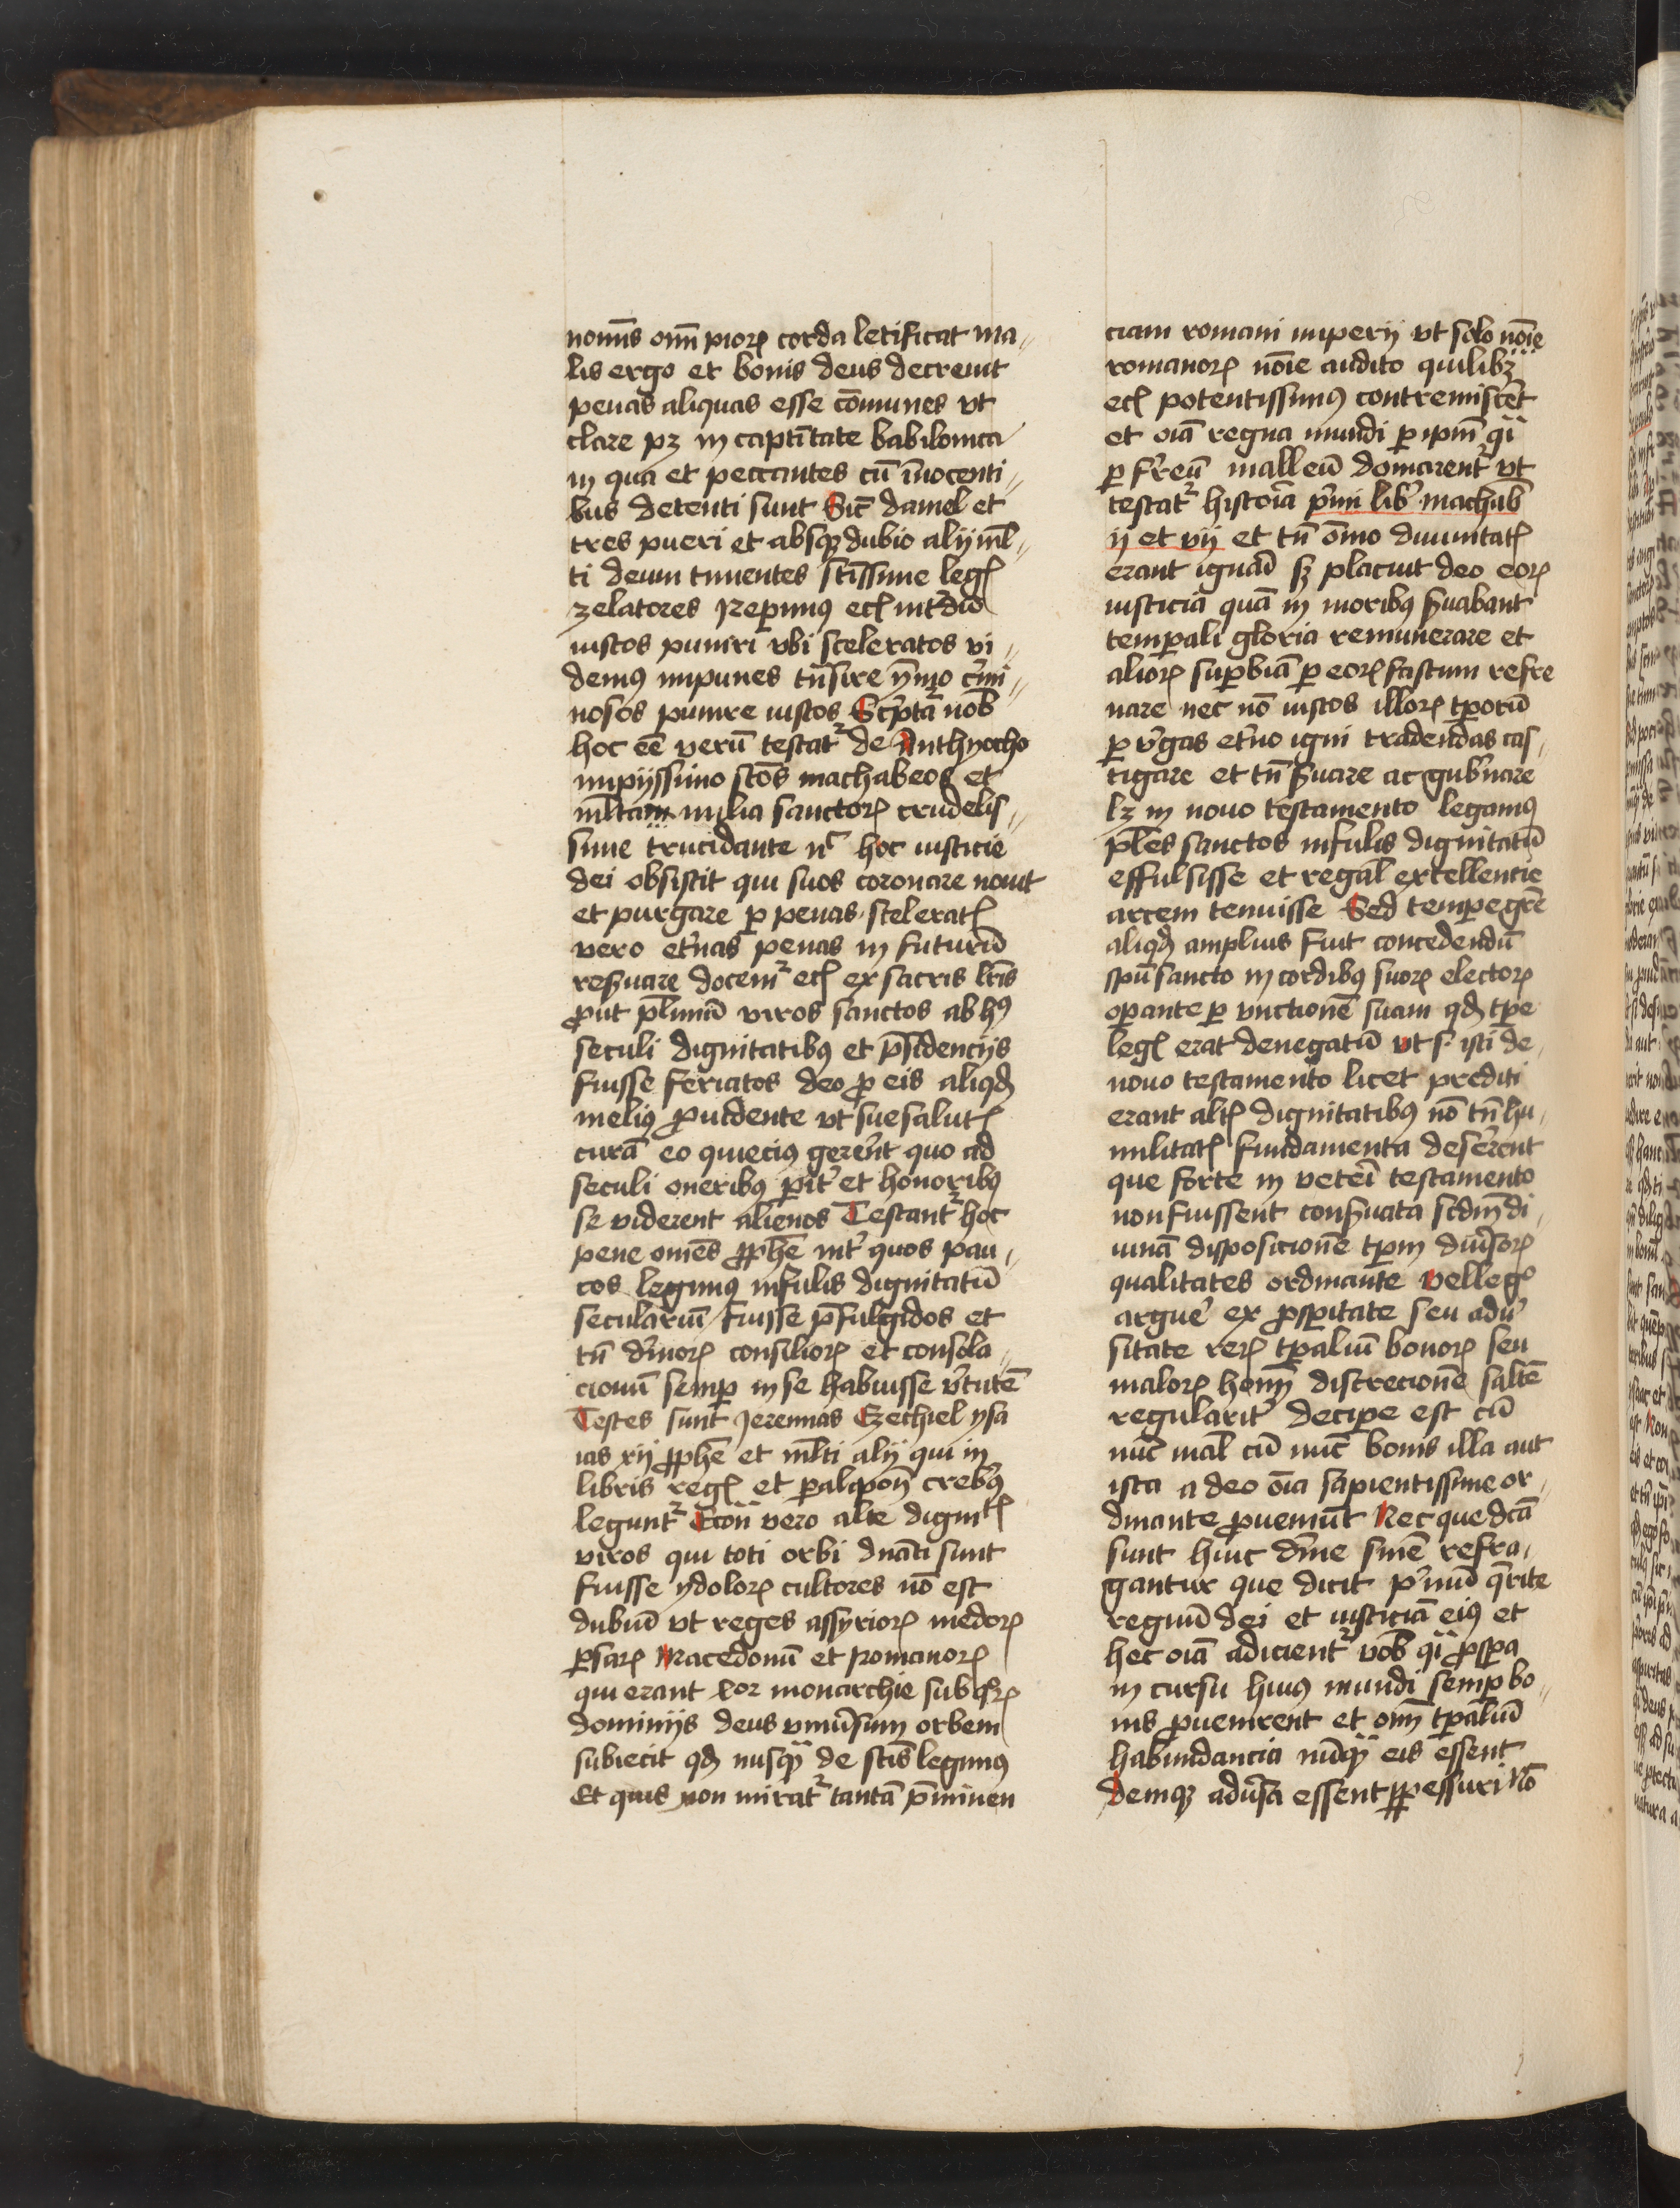 nomīs om̄ pioꝝ corda letificat ma〃
lis ergo et bonis deus decreuit
penas aliquas esse cōmunes vt
clare pꝫ in captītate babilonica
in qua et peccantes cū īnocenti〃
bus detenti sunt Sic̄ daniel et
tres pueri et absqꝫ dubio alij ml̄〃
ti deum timentes sc̄issime legꝭ
zelatores Reperimꝰ ecꝭ int̄dū
iustos puniri vbi sceleratos vi〃
demꝰ impunes tn̄sire ȳmo c̄mi〃
nosos punire iustos Sc̄pta nob̄
hoc eē verū testat᷑ de Anthyocho
impijssimo sc̄os machabeos et
ml̄ta milia sanctoꝝ crudelis〃
sime trucidante nͨ hoc iusticie
dei obsistit qui suos coronare nouit
et purgare ꝑ penas sceleratꝭ
vero et̓nas penas in futurū
res̓uare docem᷑ ecꝭ ex sacris lr̄is
ꝓut pl̄imū viros sanctos ab hꝰ
seculi dignitatibꝰ et p̄sidencijs
fuisse feriatos deo ꝓ eis aliqđ
meliꝰ ꝓuidente vt sue salutꝭ
curā eo quieciꝰ gerēnt quo ad
seculi oneribꝰ ꝑit̓ et honoribꝰ
se viderent alienos Testant᷑ hoc
pene omēs ꝓph̄e int̓ quos pau〃
cos legimꝰ infulis dignitatū
seculariū fuisse p̄fulgidos et
tn̄ diuīoꝝ consilioꝝ et consola〃
cionū semꝑ in se habuisse v̓tutē
Testes sunt Jeremias Ezechiel ysa
ias xij ꝓph̄e et ml̄ti alij qui in
libris regꝭ et ꝑalipon̄ crebꝰ
legunt᷑ Econ̄ vero alte dignitꝭ
viros qui toti orbi dn̄ati sunt
fuisse ydoloꝝ cultores nō est
dubiū vt reges assyrioꝝ medoꝝ
ꝑsaꝝ Macedonū et Romanoꝝ
qui erant monarchie sub qͦꝝ
dominijs deus vniūsum orbem
subiecit qđ nusqͣ de sc̄is legimꝰ
Et quis non mirat᷑ tantā p̄minen
ciam romani imperij vt solo nōie
romanoꝝ nōie audito quilibꝫ
ecꝭ potentissimꝰ contremiscēt
et oīa regna mundi ꝑ ip̄m qͣi
ꝑ f̓reū malleū domarent᷑ vt
testat᷑ historia p̓mi lib̓ machab̄
ij et vij et tn̄ om̄o diuinitatꝭ
erant ignari sꝫ placuit deo eoꝝ
iusticiā quā in moribꝰ s̓uabant
temꝑali gloria remunerare et
alioꝝ suꝑbiā ꝑ eoꝝ fastum refre
nare nec nō iustos illoꝝ tꝑorū
ꝑ v̓gas et̓no igni tradendas cas〃
tigare et tn̄ s̓uare ac gub̓nare
lꝫ in nouo testamento legamꝰ
pl̄es sanctos infulis dignitatū
effulsisse et regal̄ excellencie
arcem tenuisse Sed tempe gr̄e
aliqđ amplius fuit concedendū
sp̄u sancto in cordibꝰ suoꝝ electoꝝ
oꝑante ꝑ vnctionē suam qđ tꝑe
legꝭ erat denegatū vt s. isti de〃
nouo testamento licet prediti
erant altꝭ dignitatibꝰ nō tn̄ hu〃
militatꝭ fundamenta deserent
que forte in vet̓i testamento
non fuissent cons̓uata scd̄m di〃
uinā disposicionē tꝑm diūsoꝝ
qualitates ordinante Vel legͦ
argue̓ ex ꝓsꝑitate seu adu̓
sitate reꝝ tꝑaliū bonoꝝ seu
maloꝝ hom̄ discrecionē saltē
regularit̓ deciꝑe est cū
nūc mal̄ cū nūc bonis illa aut
ista a deo oīa sapientissime or〃
dinante ꝓueniūt Nec que dc̄a
sunt huic dn̄ie snīe refra〃
gantur que dicit p̓mū q̄rite
regnū dei et iusticiā eiꝰ et
hec oīa adicient᷑ vob̄ qͣi ꝓsꝑa
in cursu huiꝰ mundi semꝑ bo〃
nis ꝓuenirent et om̄ tꝑaliū
habundancia nūqͣ eis essent
demqꝫ adūsa essent ꝑpessuri Nō